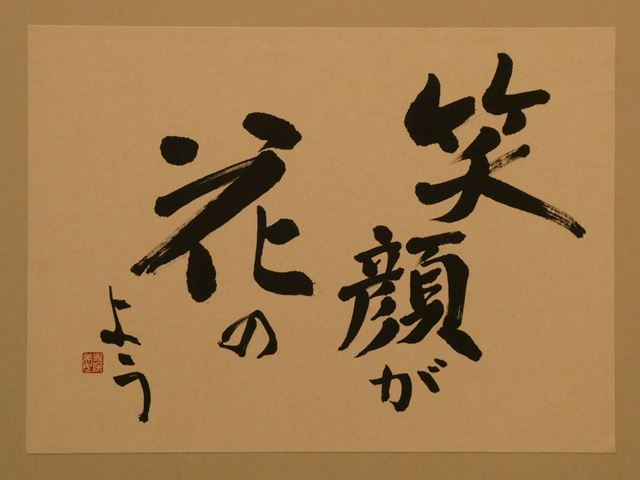 笑顔が
花の
よう